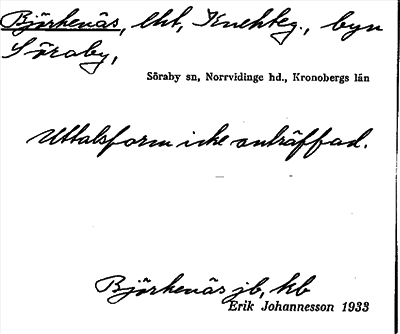 Björkenäs, lht, Knekteg., byn
Söraby,
Söraby sn, Norrvidinge hd., Kronobergs län
Uttalsform icke anträffad.
Björkenäs jb, kb
Erik Johannesson 1933